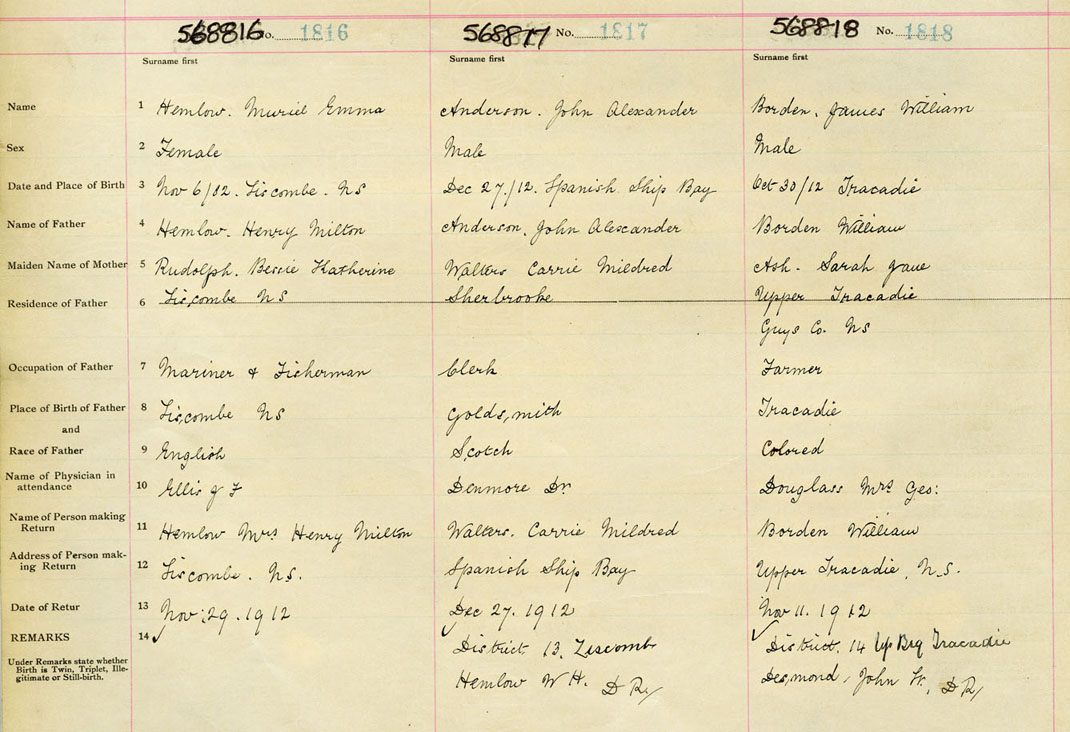 568816 No. 1816 568817 No. 1817 568818 No. 1818
Surname first Surname first Surname first
Name 1 Hemlow. Muriel Emma Anderson. John Alexander Borden. James William
Sex 2 Female Male Male
Date and Place of Birth 3 Nov 6/12. Liscombe. NS Dec 27/12. Spanish Ship Bay Oct 30/12 Tracadie
Name of Father 4 Hemlow. Henry Milton Anderson. John Alexander Borden William
Maiden Name of Mother 5 Rudolph. Bessie Katherine Walters Carrie Mildred Ash. Sarah Jane
Residence of Father 6 Liscombe NS Sherbrooke Upper Tracadie
Guys Co. NS
Occupation of Father 7 Mariner & Fisherman Clerk Farmer
Place of Birth of Father 8 Liscombe NS Goldsmith Tracadie
and
Race of Father 9 English Scotch Colored
Name of Physician in
attendance 10 Ellis J F Denmore Dr. Douglass Mrs Geo:
Name of Person making
Return 11 Hemlow Mrs Henry Milton Walters. Carrie Mildred Borden William
Address of Person mak-
ing Return 12 Liscombe. NS. Spanish Ship Bay Upper Tracadie, N.S.
Date of Retur 13 Nov. 29. 1912 Dec 27. 1912 Nov 11. 1912
REMARKS 14 District 13. Liscomb District. 14 Up Big Tracadie
Under Remarks state whether
Birth is Twin, Triplet, Ille-
gitimate or Still-birth.
Hemlow W H. D R/ Desmond, John W., D R/